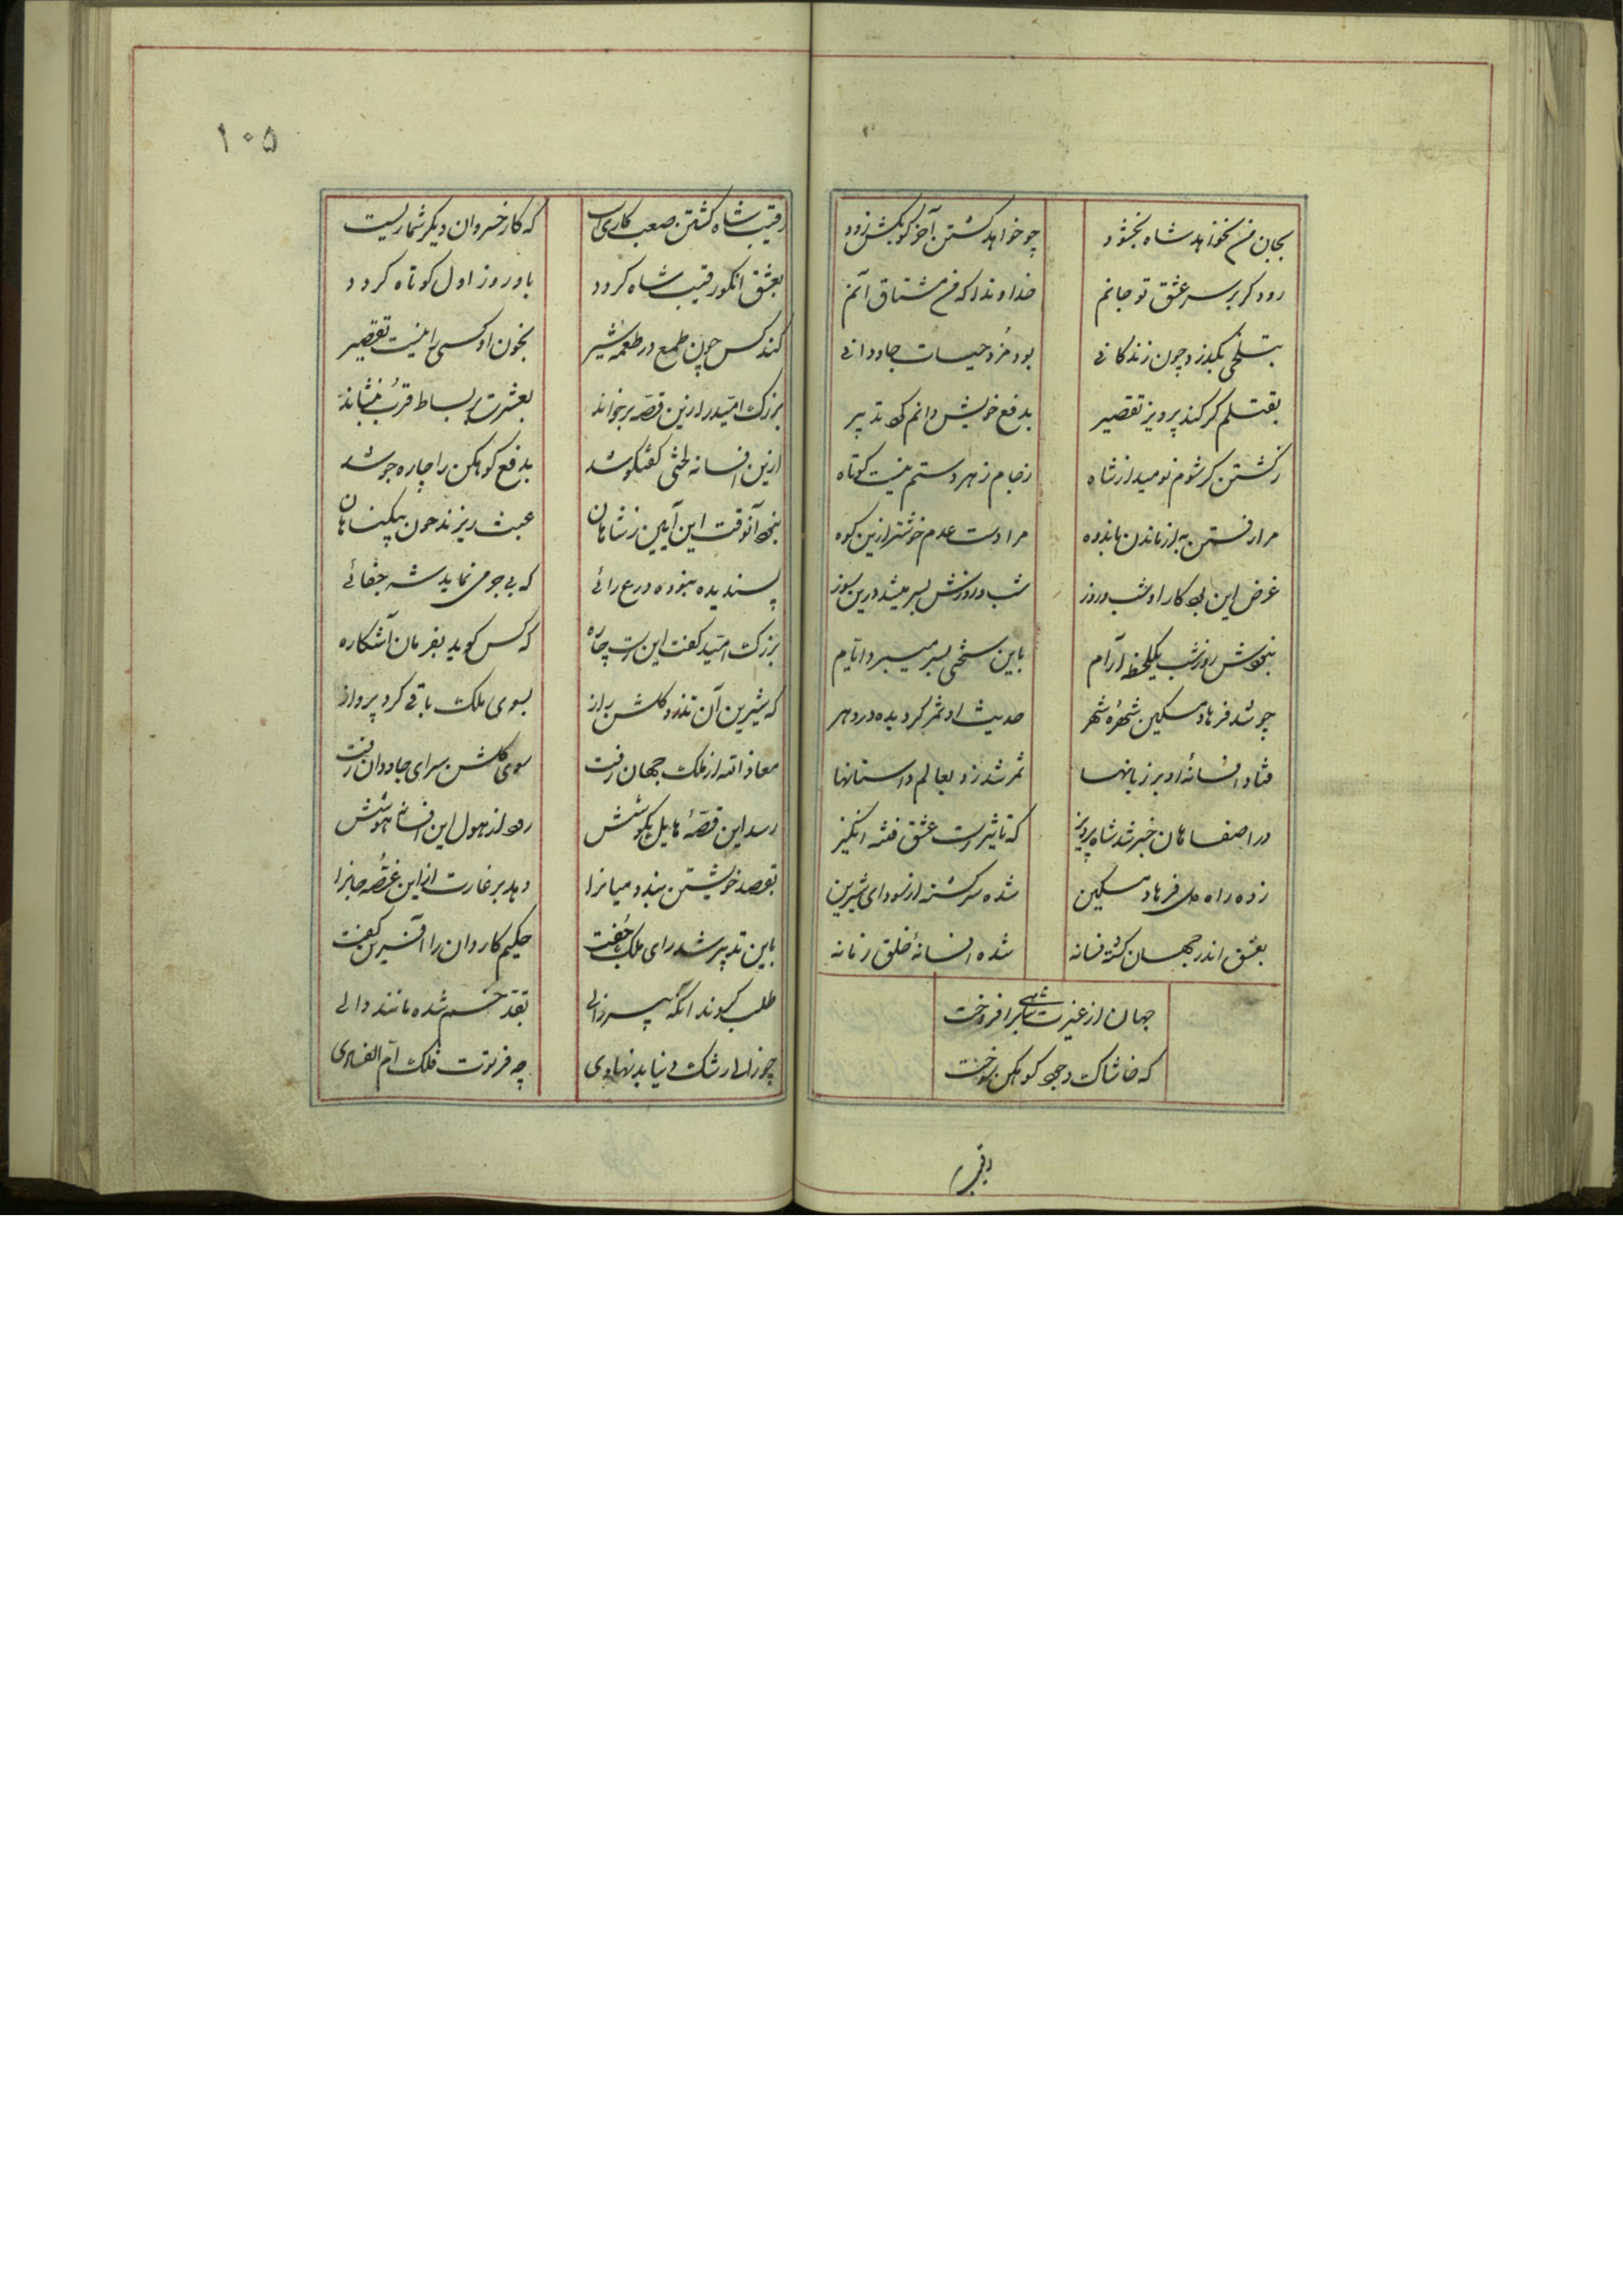 بجان من نخواهد شاه بخشود چو خواهد کشتن آخر کو بکش زود
رود کر بر سر عشق تو جانم خداوندا که من مشتاق آنم
بتلخی بکذرد چون زندکانی بود مزد حیات جاودانی
بقتلم کر کند پرویز تقصیر بدفع خویش دانم کرد تدبیر
زکشتن کر شوم نومید از شاه زجام زهر دستم نیست کوتاه
مرا رفتن به از ماندن باندوه مرا دشت عدم خوشتر ازین کوه
غرض این بود کار او شب و روز شب و روزش بسر میشد درین سوز
نبودش روز و شب یکلحظه آرام باین سختی بسر میبرد ایام
چو شد فرهاد مسکین شهرهٔ شهر حدیث او ثمر کردیده در دهر
فتاد افسانهٔ او بر زبانها ثمر شد زو بعالم داستانها
در اصفاهان خبر شد شاه پرویز که تاثیرست عشق فتنه انکیز
زده راه دل فرهاد مسکین شده سرکشته از سودای شیرین
بعشق اندر جهان کشته فسانه شده افسانهٔ خلق زمانه
جهان از غیرت شاهی برافروخت
که خاشاک وجود کوهکن سوخت
رقیب
۱۰۵
رقیب شاه کشتن صعب کاریست که کار خسروان دیکر شماریست
بعشق آنکو رقیب شاه کردد باو روز اول کوتاه کردد
کند کس چون طمع در طعمهٔ شیر بخون او کسی را نیست تقصیر
بزرک امید را زین قصه برخواند بعشرت بر بساط قرب بنشاند
ازین افسانه لختی کفتکو شد بدفع کوهکن را چاره جو شد
نبود آنوقت این آیین ز شاهان عبث ریزند خون بیکناهان
پسندیده نبوده در ع رائی که بی جرمی نماید شه جفائی
بزرک امید کفت این است چاره که کس کوید بفرمان آشکاره
که شیرین آن تذرو کلشن راز بسوی ملک باقی کرد پرواز
معاذ الله از ملک جهان رفت سوی کلشن سرای جاودان رفت
رسد این قصهٔ هایل بکوشش رود از هول این افسانه هوشش
بقصد خویشتن بندد میانرا دهد بر غارت این غصه جانرا
باین تدبیر شد رای ملک جفت حکیم کاردان را آفرین کفت
طلب کردند آنکه پیر زالی بقد خم شده مانند دالی
چو زالی رشک دنیا بد نهادی چه فرتوت فلک ام الفسادی